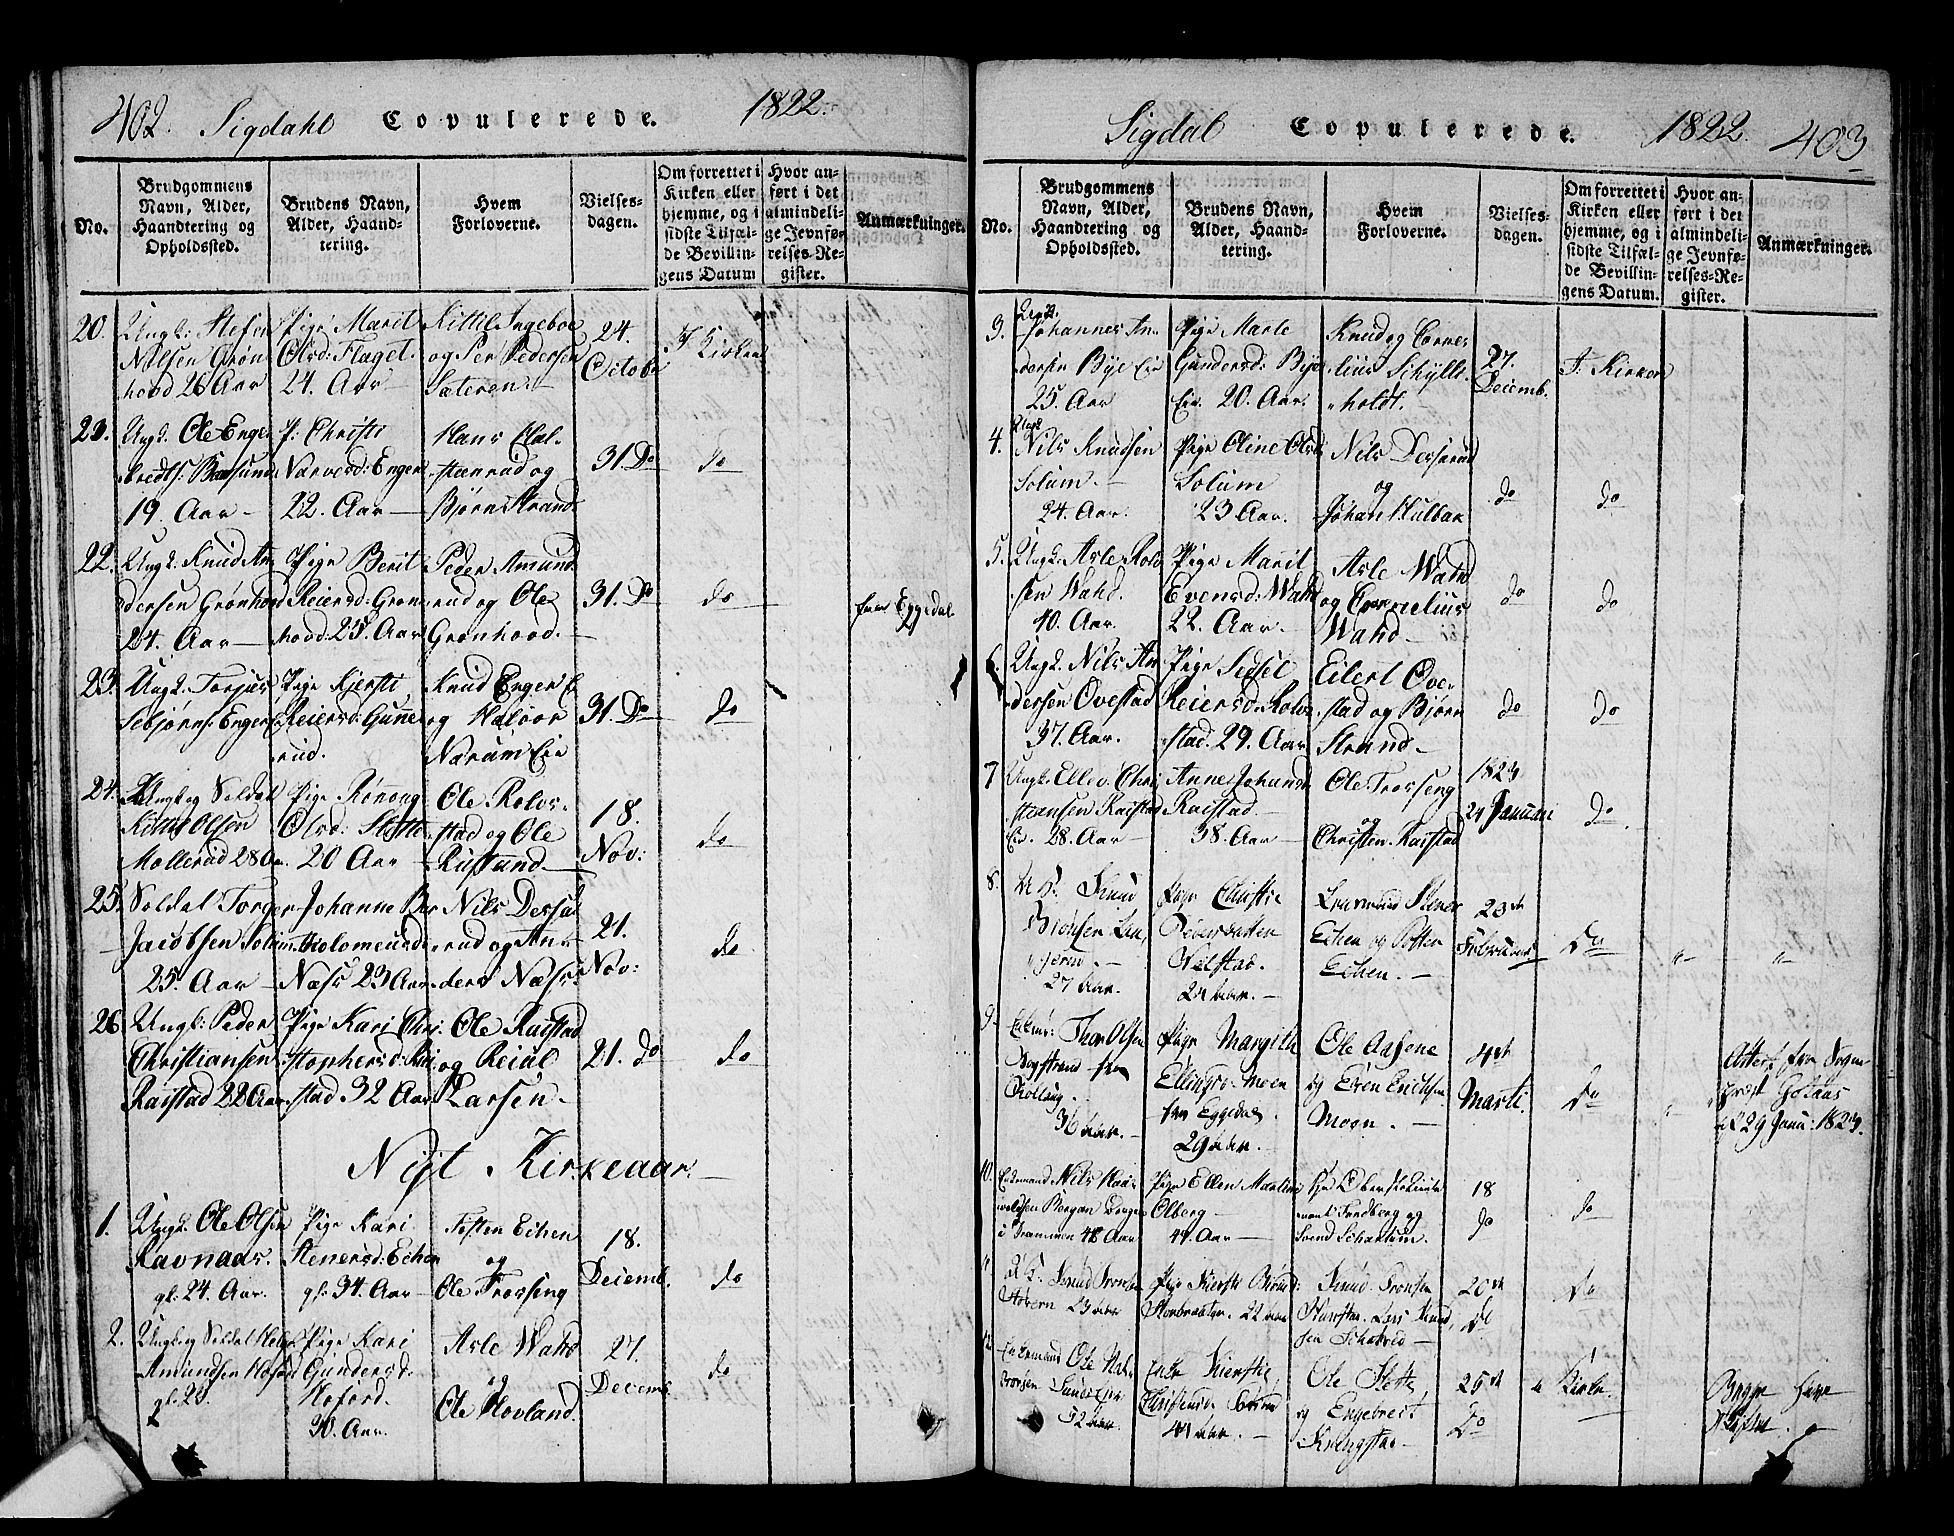 402. Sigdahl Copulerede. 1822.
No.
Brudgommens
Navn, Alder,
Haandtering og
Opholdssted.
Brudens Navn,
Alder, Haand-
tering.
Hvem
Forloverne.
Vielses-
dagen.
Om forrettet i
Kirken eller
hjemme, og i
sidste Tilfæl-
de Bevillin-
gens Datum
Hvor an-
ført i det
almindeli-
ge Jevnfø-
relses-Re-
gister.
Anmærkninger.
20. Ungk: Stefen
Nilsen Grøn
hovd 26 Aar
Pige Marit
Olsd: Flaget
24. Aar
Kittil Ingeboe
og Per Pedersen
Sæteren.
24.
October
I Kirken
21. Ungk. Ole Enge
bredts: Baasund
19. Aar
P: Christi
Narvesd: Enger
22. Aar
Hans Hal-
steenrud og
Bjørn Strand
31 Do
do
22. Ungk. Knud An
dersen Grønhovd
24. Aar
Pige Berit
Reiersd: Gron
hovd. 25. Aar
Peder Amund
rud og Ole
Gronhovd.
31. Do
do
fra Eggedal
23. Ungk. Torjus
Sebjørns: Enger E
Pige Kjersti
Reiersd: Gunne
rud.
Knud Enger E
og Halvor
Narum Eie
31. Do
do
24. Ungk og Soldat
Kittil Olsen
Mollerud 28 Aar
Pige Rønnoug
Olsd: Slette
20 Aar
Ole Rolvs-
stad og Ole
Rustand
18.
Nov:
do
25. Soldat Torger
Jacobsen Solum
25. Aar
Johanne Bar
tholomeusd
Næss 23 Aar
Nils Dersa
rud og An-
ders Næss
21.
Nov:
do
26. Ungk: Peder
Christiansen
Raistad 22 Aar
Pige Kari Chri
stophersd: Rai
stad 32 Aar
Ole Raistad
og Reial
Larsen.
21. do
do
Nyt Kirkeaar.
1. Ungk. Ole Olsen
Ravnaas.
gl: 24. Aar.
Pige Kari
Stenersd: Echen
gl: 34. Aar
Tosten Echen
og
Ole Frorsing
18.
Decemb.
do
2. Ungk og Soldat
Amundsen Hoford
gl: 25.
Pige Kari
Gundersd:
Hoford.
30. Aar.
Asle Wahd
og
Ole Hovland.
27.
Decemb
do
Sigdal Copulerede. 1822. 403
No.
Brudgommens
Navn, Alder,
Haandtering og
Opholdssted.
Brudens Navn,
Alder, Haand-
tering.
Hvem
Forloverne.
Vielses-
dagen.
Om forrettet i
Kirken eller
hjemme, og i
sidste Tilfæl-
de Bevillin-
gens Datum.
Hvor an-
ført i det
almindeli-
ge Jevnfø-
relses-Re-
gister.
Anmærkninger.
3. Ungk.
Johannes An-
dersen Bye Eie
25. Aar
Pige Marte
Gundersd: Bye
Eie. 20. Aar.
Knud og Corne-
lius Schyllt-
holdt.
27.
Decemb.
I Kirken
4. Ungk
Nils Knudsen
Solum.
24. Aar.
Pige Oline Olsd
Solum
23 Aar.
Nils Dersarud
og
Johan Hulbak
do
do
5. Ungk. Asle Rolv
sen Wahd.
40. Aar.
Pige Marit
Evensd: Wahd
22. Aar.
Asle Wahd
og Cornelius
Wahd
do
do
6. Ungk. Nils An
dersen Ovestad
37. Aar.
Pige Sidsel
Reiersd: Rolv
stad. 29. Aar
Eilert Ove-
stad og Bjørn
Strand
do
do
7 Ungk. Ellev Chri
stiansen Raistad
Eie. 28. Aar
Anne Johansd
Raistad
38. Aar
Ole Frorseng
og
Christen Raistad
1823
24 Januari
do
8. Knud
Biønsen
27 Aar.
Pige Christie
Pedersdatter
Velstad.
24 Aar.
Stener
Echen og Posten
Echen.
23de
Februarii
Do
"
"
9. Enkem: Thor Olsen
Bogstrand fra
Rolloug.
36 Aar.
Pige Margith
Ellingsd. Moen
fra Eggedal
29 Aar.
Ole Aasene
og Even Erichsen
Moen.
4de
Marti.
Do
"
Attest fra
Provst
af 29 Janu: 1823.
10. Enkemand Nils Haa-
voldsen Bergan
i Drammen 48 Aar
Pige Ellen Martine
Olberg
44. Aar
Hr Oberstelieute
nant Fredberg og
Svend Schartum.
18
do
do
11 Knud Tronsen
23 Aar
Pige Kiersti
22 Aar
Knud Tronsen
Lars Knud
sen
20de
Do
Do
12 Enkemand Ole Hal-
vorsen
52 Aar
Enke Kierstie
Christensd:
44 Aar.
Ole Slette
og Engebret
Kringstad
25de
Do
Kirke.
Begge